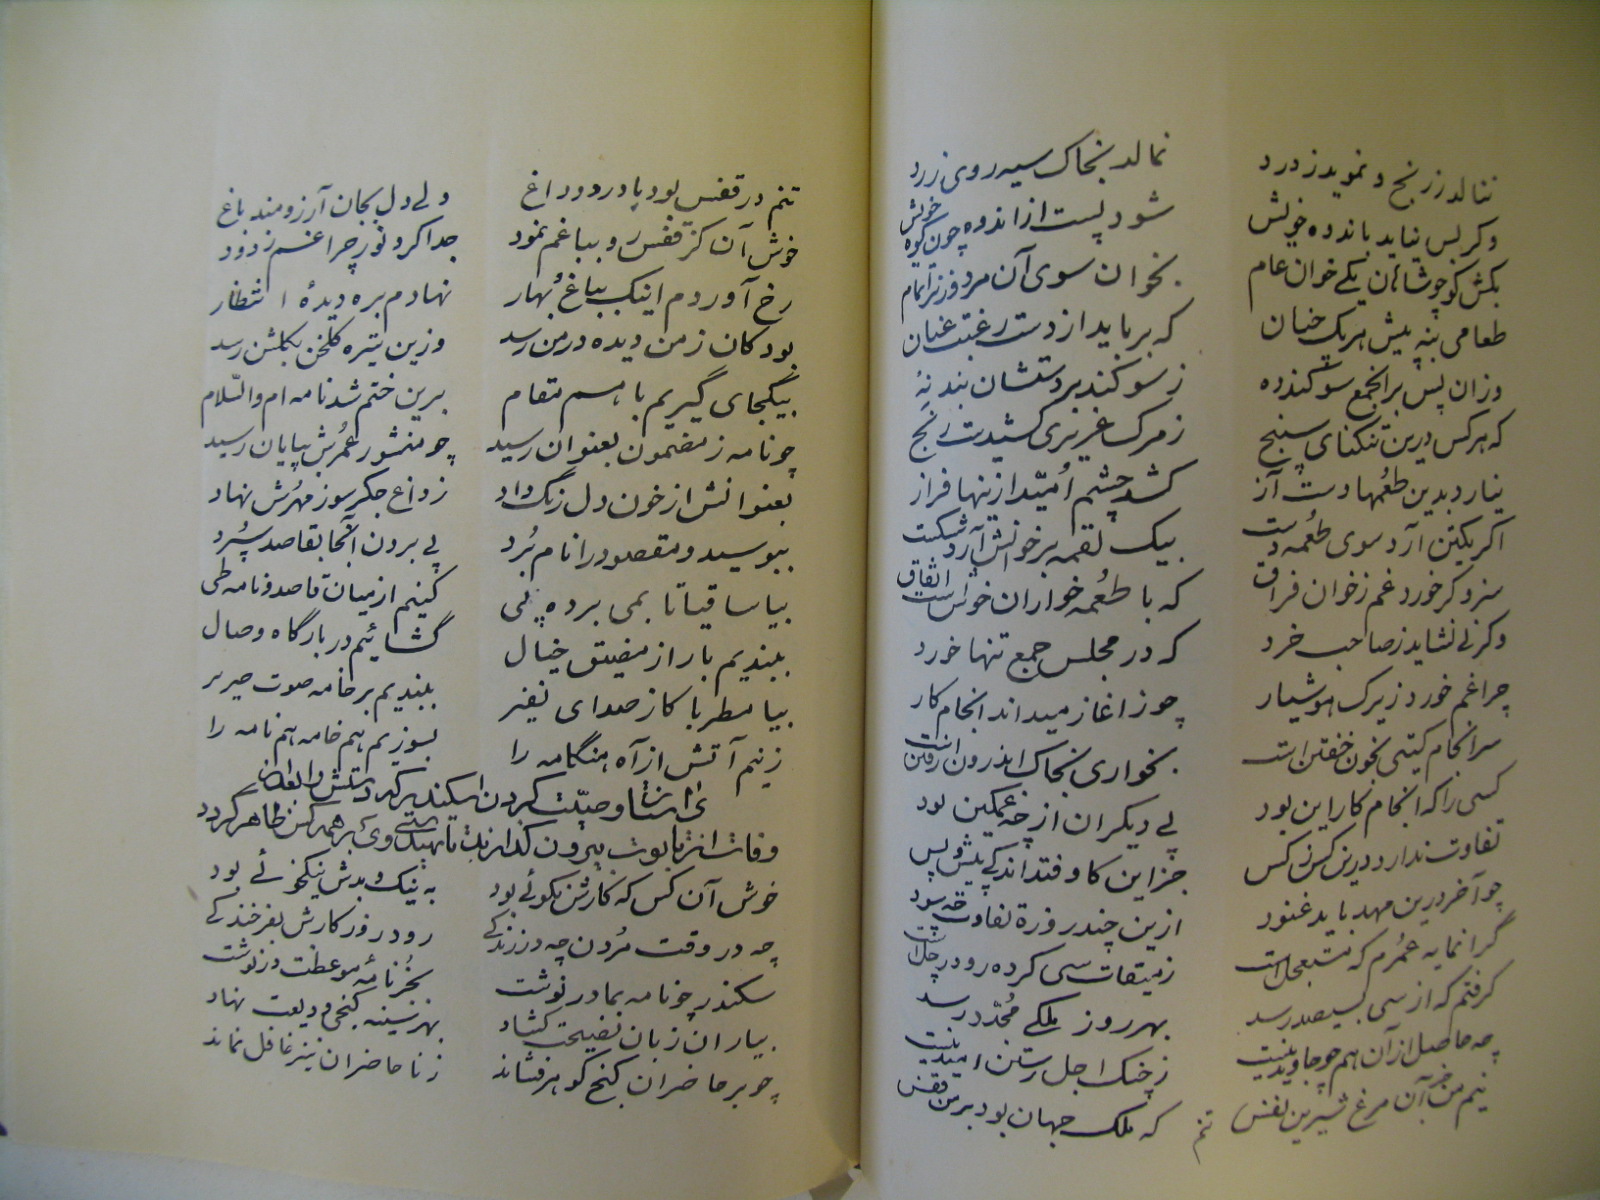 ننالد ز رنج و نموید ز درد نمالد بخاک سیه روی زرد
وگر بس نیاید باندوه خویش شود پست از اندوه چون کوه خویش
بکش گوچو شاهان یکی خوان عام بخوان سوی آن مرد و زن را تمام
طعامی بنه پیش هر یک چنان که برباید از دست رغبت عنان
وزان پس بر آنجمع سوگند ده ز سوگند بر دستشان بند نه
که هر کس درین تنگنای سپنج ز مرگ عزیزی کشیدست رنج
نیارد بدین طعمها دست آز کشد چشم امید از تنها فراز
اگر یکتن آرد سوی طعمه دست بیک لقمه بر خوانش آرد شکست
سزد گر خورد غم ز خوان فراق که با طعمه خواران خوانست اتفاق
وگرنی نشاید ز صاحب خرد که در مجلس جمع تنها خورد
چرا غم خورد زیرک هوشیار چو ز اغاز میداند انجام کار
سرانجام گیتی بخون خفتن است بخواری بخاک اندرون رفتن است
کسی را که انجام کار این بود پی دیگران از چه غمگین بود
تفاوت ندارد درین کس ز کس جز این کاوفتد اندکی پیش و پس
چو آخر درین مهد باید غنود ازین چند روزه تفاوت چه سود
گرانمایه عمرم که مستعجل است ز میقات سی کرده رو در چل است
گرفتم که از سی بسیصد رسد بهر روز ملکی مجدد رسد
چه حاصل از آن هم چو جاوید نیست ز چنگ اجل رستن امید نیست
نیم من جز آن مرغ شیرین نفس که ملک جهان بود بر من قفس
تنم
تنم در قفس بود با درد و داغ ولی دل بجان آرزومند باغ
خوش آن کز قفس ره بباغم نمود جدا کرد نور چراغم ز دود
رخ آوردم اینک بباغ بهار نهادم بره دیدهٔ انتظار
بود کان ز من دیده در من رسد وزین تیره گلخن بگلشن رسد
بیکجای گیریم با هم مقام برین ختم شد نامه ام والسلام
چو نامه ز مضمون بعنوان رسید چو منشور عمرش بپایان رسید
بعنوانش از خون دل رنگ داد ز داغ جگرسوز مهرش نهاد
ببوسید و مقصود را نام برد پی بردن آنجا بقاصد سپرد
بیا ساقیا تا بمی برده پی کنیم از میان قاصد و نامه طی
ببندیم بار از مضیق خیال گشائیم در بارگاه وصال
بیا مطربا کاز صدای نفیر ببندیم بر خامه صوت صریر
زنیم آتش از آه هنگامه را بسوزیم هم خامه هم نامه را
وصیت کردن اسکندر که دستش را بعد از
وفات از تابوت بیرون گذارند تا تهیدستی وی بر همه کس ظاهر گردد
خوش آن کس که کارش نکوئی بود به نیک و بدش نیکخوئی بود
چه در وقت مردن چه در زندگی رود روز کارش بفرخندگی
سکندر چو نامه بمادر نوشت بخرنامهٔ موعظت در نوشت
بیاران زبان نصیحت گشاد بهر سینه گنجی ودیعت نهاد
چو بر حاضران گنج گوهر فشاند ز ناحاضران نیز غافل نماند